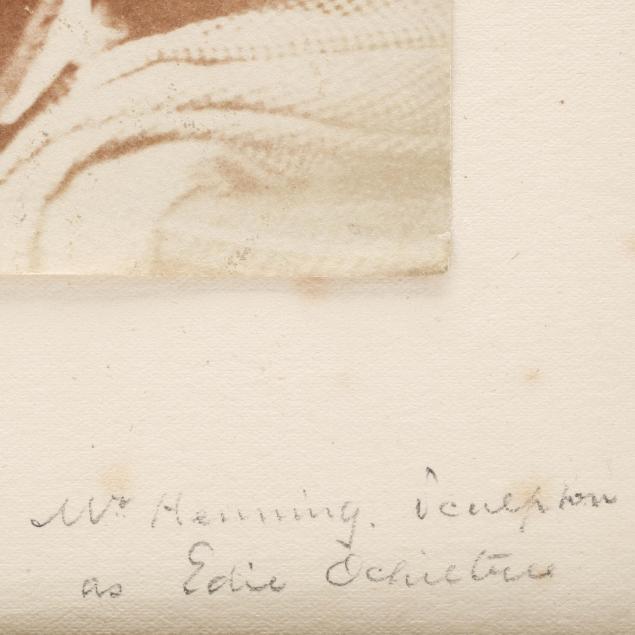 Mr Henning. Sculptor
as Edie Ochiltree